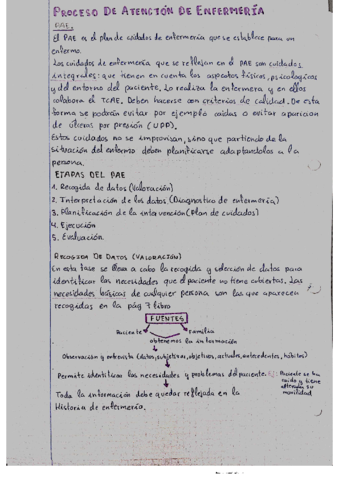 PROCESO DE ATENCIÓN DE ENFERMERÍA
PAE.
El PAE es el plan de cuidados de enfermería que se establece para un
enfermo.
Los cuidados de enfermería que se reflejan en el PAE son cuidados
integrales: que tienen en cuenta los aspectos físicos, psicologicos
y del entorno del paciente. Lo realiza la enfermera y en ellos
colabora el TCAE. Deben hacerse con criterios de calidad. De esta
forma se podrán evitar por ejemplo caidas o evitar aparicion
de úlceras por presión (UPP).
Estos cuidados no se improvisan, sino que partiendo de la
situación del enfermo deben planificarse adaptandolos a la
persona.
ETAPAS DEL PAE
1. Recogida de datos (Valoración)
2. Interpretación de los datos (Diagnostico de enfermería)
3. Planificación de la intervención (Plan de cuidados)
4. Ejecución
5. Evaluación.
RECOGIDA DE DATOS (VALORACIÓN)
En esta fase se lleva a cabo la recogida y selección de datos para
identificar las necesidades que el paciente no tiene cubiertas. Las
necesidades básicas de cualquier persona son las que aparecen
recogidas en la pág 7 libro
FUENTES
Paciente Familia
obtenemos la información
Observación y entrevista (datos, subjetivos, objetivos, actuales, antecedentes, hábitos)
Permite identificar las necesidades y problemas del paciente. Ej: Paciente se ha
caido y tiene
alterada su
movilidad
Toda la información debe quedar reflejada en la
Historia de enfermería.